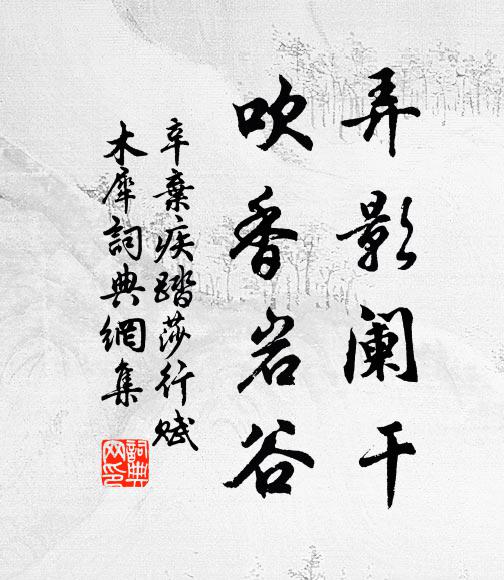 弄影阑干
吹香岩谷
辛棄疾踏莎行賦
木犀詞典網集
詞典网印